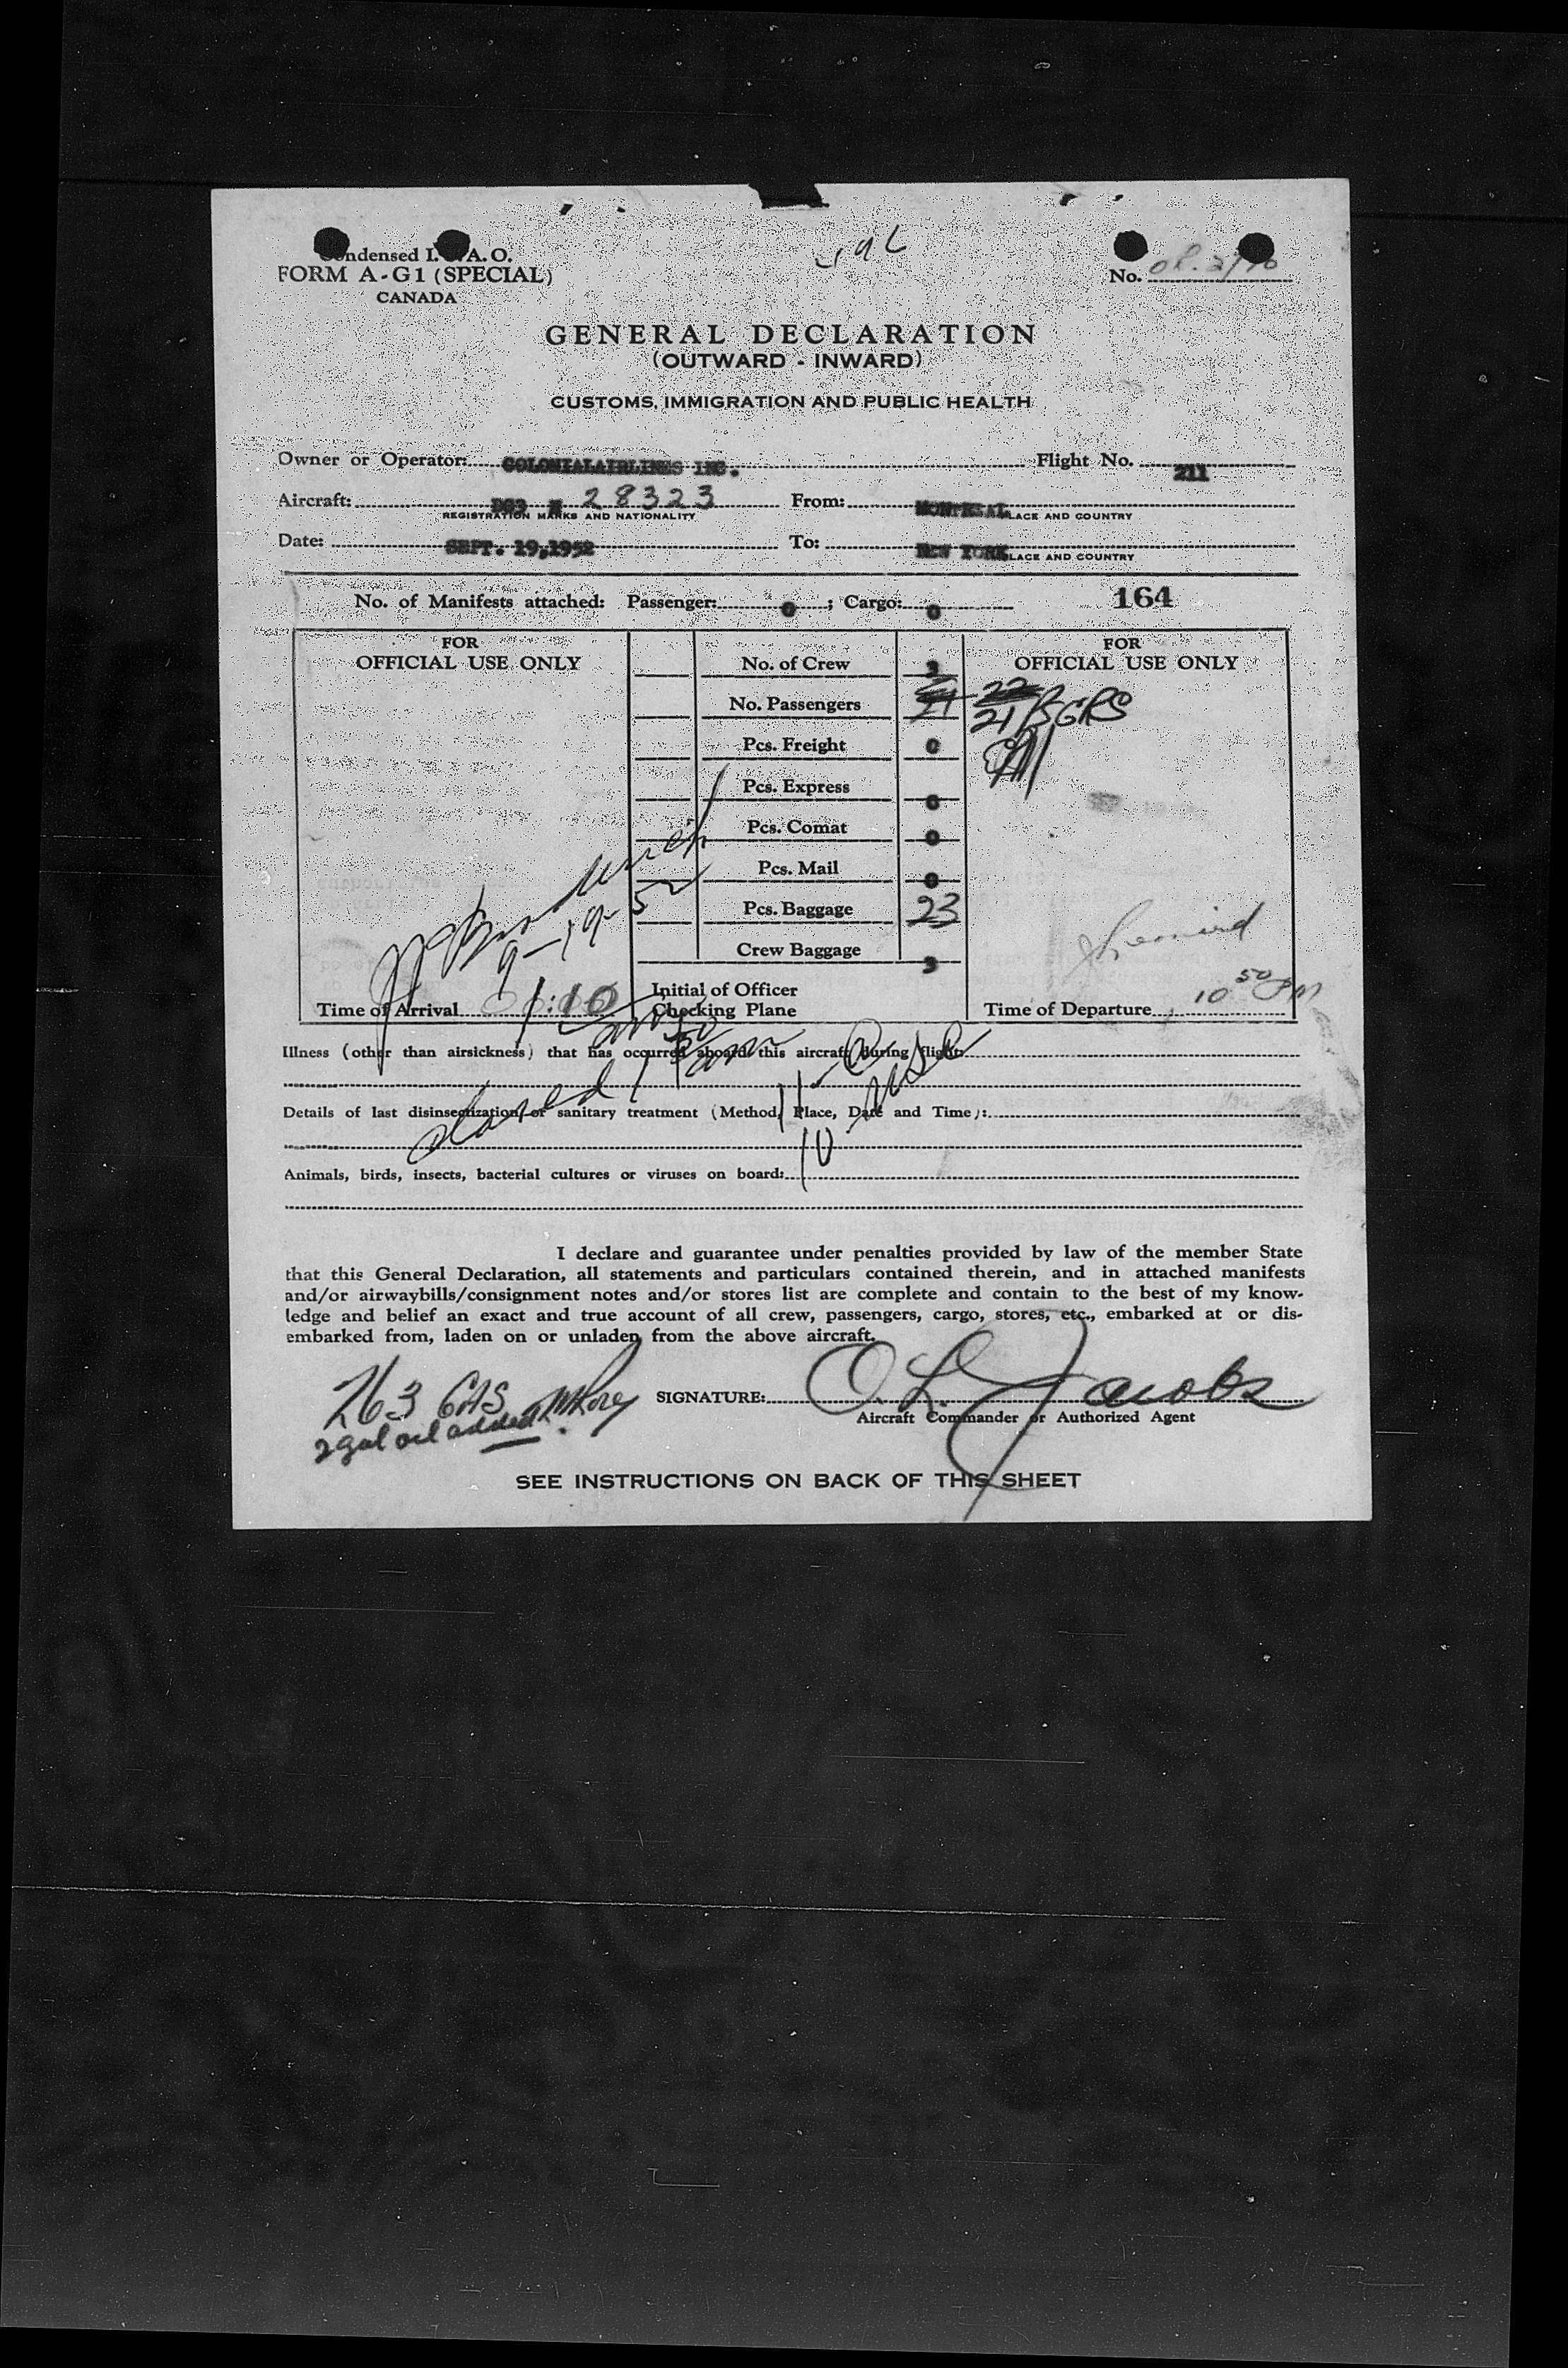 Condensed I.C.A.O.
FORM A-G1 (SPECIAL)
CANADA
No.
GENERAL DECLARATION
(OUTWARD - INWARD)
CUSTOMS, IMMIGRATION AND PUBLIC HEALTH
Owner or Operator: COLONIALAIRLINES INC. Flight No. 211
Aircraft: DC3 N 28323 From: MONTREAL
REGISTRATION MARKS AND NATIONALITY PLACE AND COUNTRY
Date: SEPT. 19,1952 To: NEW YORK
PLACE AND COUNTRY
No. of Manifests attached: Passenger: 0 ; Cargo: 0 164
FOR
OFFICIAL USE ONLY
No. of Crew 3
FOR
OFFICIAL USE ONLY
No. Passengers 21
22
21 PSGRS
Pcs. Freight 0
Pcs. Express 0
Pcs. Comat 0
Pcs. Mail 0
Pcs. Baggage 23
Crew Baggage 3
9-19-52
Time of Arrival 1:10 am
Initial of Officer
Checking Plane
Time of Departure 10 50 PM
Illness (other than airsickness) that has occurred aboard this aircraft during flight:
Details of last disinsectization or sanitary treatment (Method, Place, Date and Time):
Animals, birds, insects, bacterial cultures or viruses on board:
I declare and guarantee under penalties provided by law of the member State
that this General Declaration, all statements and particulars contained therein, and in attached manifests
and/or airwaybills/consignment notes and/or stores list are complete and contain to the best of my know-
ledge and belief an exact and true account of all crew, passengers, cargo, stores, etc., embarked at or dis-
embarked from, laden on or unladen from the above aircraft.
263 GAS
2 gal oil added
SIGNATURE: O. L. Jacobs
Aircraft Commander or Authorized Agent
SEE INSTRUCTIONS ON BACK OF THIS SHEET